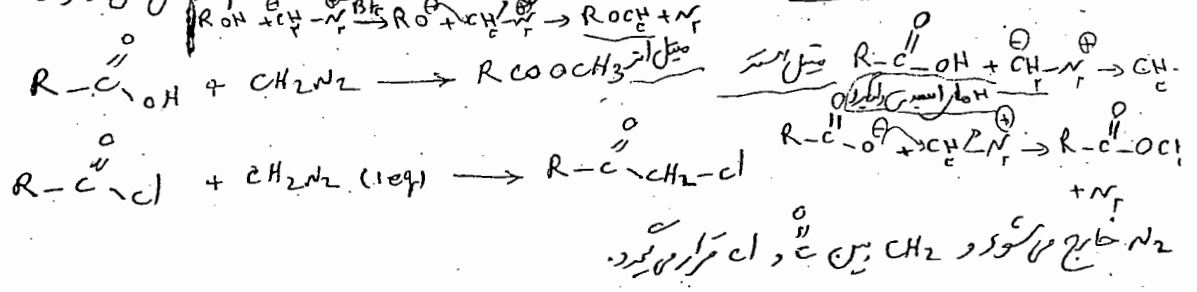 R OH + CH₂⊖ – N₂⊕ BF₃→ RO⊖ + CH₃ – N₂⊕ → ROCH₃ + N₂
R–C(=O)–OH + CH2N2 → RCOOCH3 متیل اتر متیل استر R–C(=O)–OH + CH₂⊖–N₂⊕ → CH₃-
H اسیدی را
R–C(=O)–O⊖ + CH₃–N₂⊕ → R–C(=O)–OC
R–C(=O)–Cl + CH2N2 (1eq) → R–C(=O)–CH2–Cl + N₂
N2 خارج می‌شود و CH2 بین C=O و Cl قرار می‌گیرد.